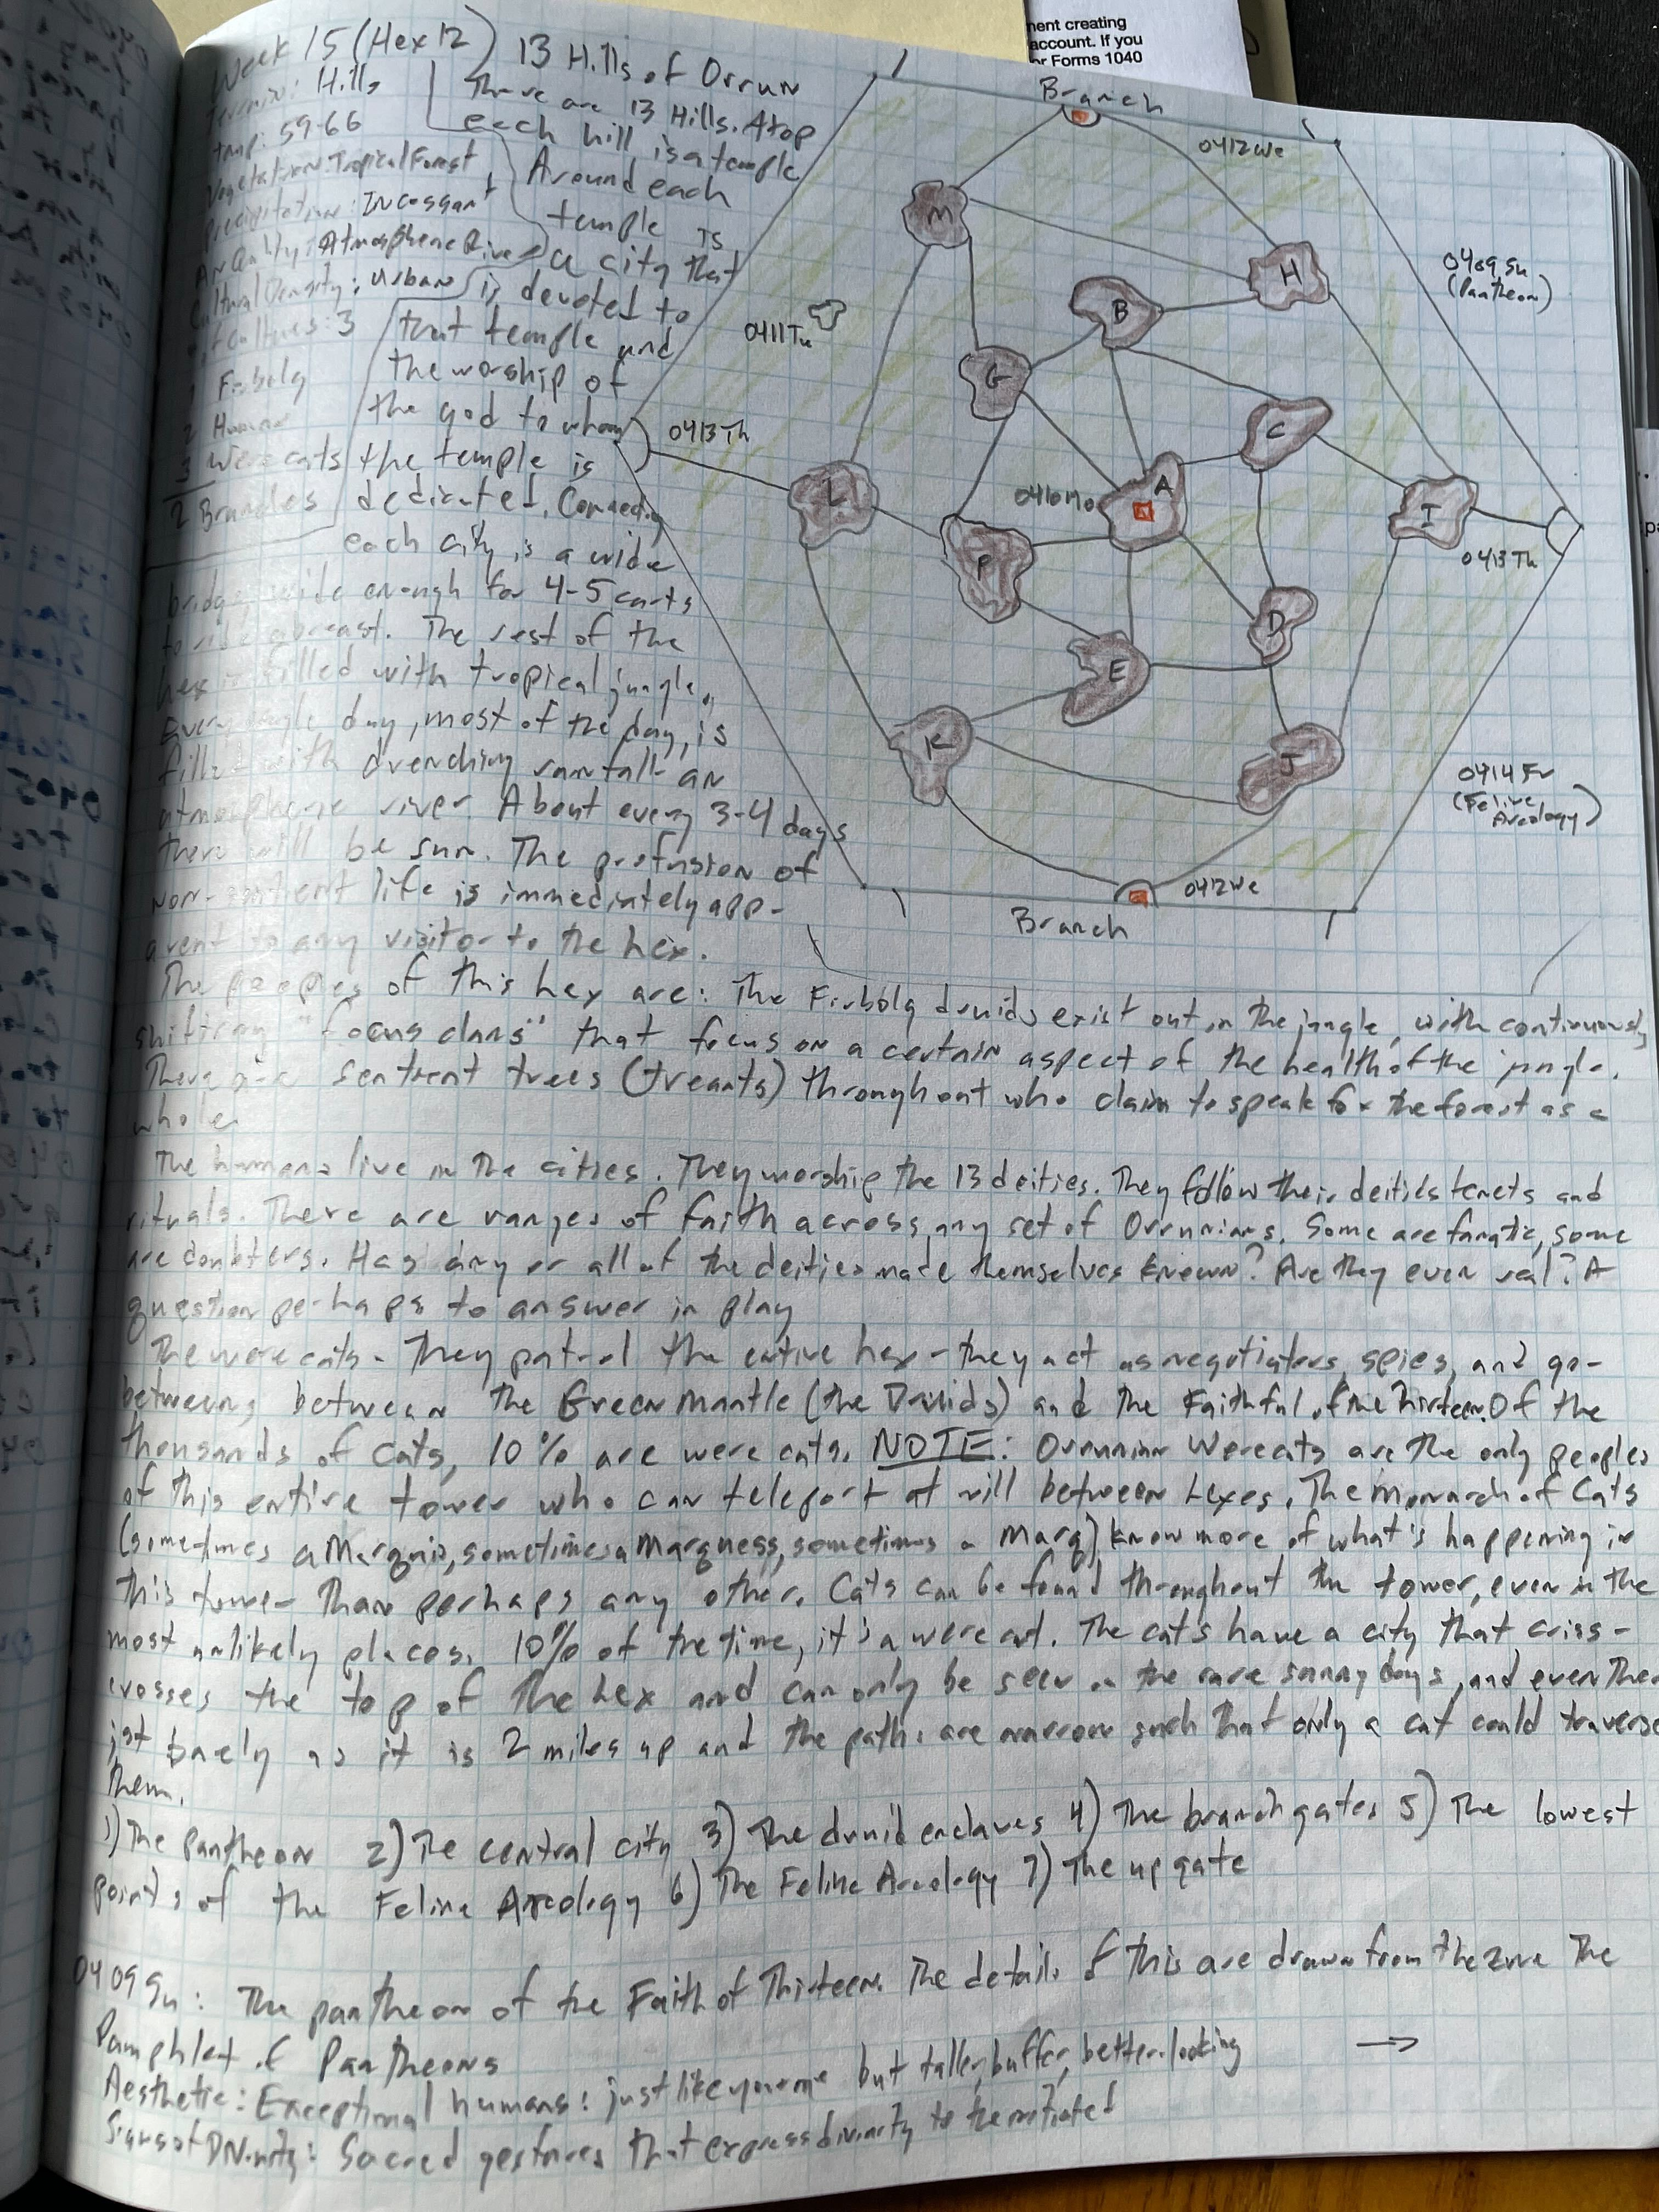 nent creating
account. If you
or Forms 1040
Week 15 (Hex 12) 13 Hills of Orrun
Terrain: Hills
Temp: 59-66
Vegetation: Tropical Forest
Precipitation: Incessant
Air Quality: Atmosphene River
Cultural Density: Urban
# of Cultures: 3
1 Firbolg
2 Human
3 Werecats
2 Branches
There are 13 Hills. Atop
each hill is a temple
Around each
temple is
a city that
is devoted to
that temple and
the worship of
the god to whom
the temple is
dedicated. Connecting
each city is a wide
bridge, wide enough for 4-5 carts
to ride abreast. The rest of the
hex is filled with tropical jungle.
Every single day, most of the day, is
filled with drenching rainfall - an
atmospheric river. About every 3-4 days
there will be sun. The profusion of
non-sentient life is immediately app-
arent to any visitor to the hex.
Branch
0412We
M
H
0409Su
(Pantheon)
B
0411Tu
G
C
0413Th
L
A
0410Mo
I
0413Th
F
D
E
K
J
0414Fr
(Feline
Arcology)
0412We
Branch
The peoples of this hex are: The Firbolg druids exist out in the jungle, with continuously
shifting "focus clans" that focus on a certain aspect of the health of the jungle.
There are sentient trees (treants) throughout who claim to speak for the forest as a
whole.
The humans live in the cities. They worship the 13 deities. They follow their deities tenets and
rituals. There are ranges of faith across any set of Orrunians. Some are fanatic, some
are doubters. Has any or all of the deities made themselves known? Are they even real? A
question perhaps to answer in play
The werecats - They patrol the entire hex - they act as negotiators, spies, and go-
betweens between the Green Mantle (the Druids) and the Faithful of the Thirteen. Of the
thousands of cats, 10% are were cats. NOTE: Orrunian Werecats are the only peoples
of this entire tower who can teleport at will between hexes. The Monarch of Cats
(sometimes a Marquis, sometimes a Marqness, sometimes a Marq) know more of what's happening in
this tower than perhaps any other. Cats can be found throughout the tower, even in the
most unlikely places. 10% of the time, it's a werecat. The cats have a city that criss-
crosses the top of the hex and can only be seen on the rare sunny days, and even then
just barely as it is 2 miles up and the paths are narrow such that only a cat could traverse
them.
1) The pantheon 2) The central city 3) The druid enclaves 4) The branch gates 5) The lowest
points of the Feline Arcology 6) The Feline Arcology 7) The up gate
0409Su: The pantheon of the Faith of Thirteen. The details of this are drawn from the zine The
Pamphlet of Pantheons
Aesthetic: Exceptional humans: just like you or me but taller, buffer, better-looking →
Signs of Divinity: Sacred gestures that express divinity to the initiated